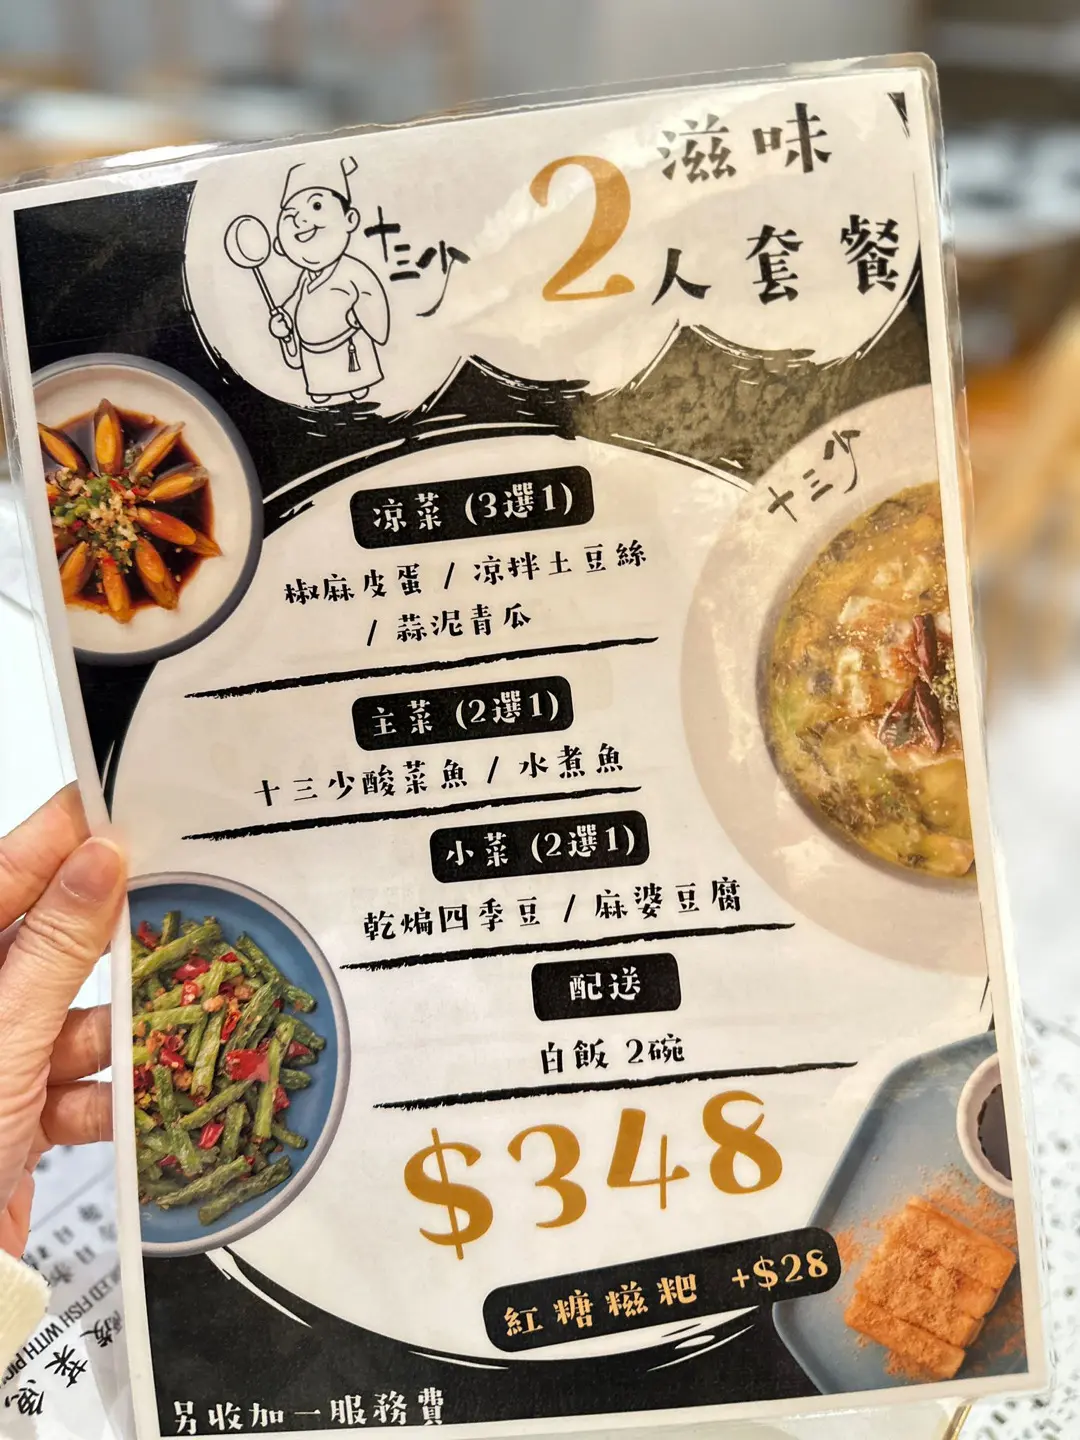 滋味
2人套餐
十三少
十三少
凉菜 (3選1)
椒麻皮蛋 / 凉拌土豆絲
/ 蒜泥青瓜
主菜 (2選1)
十三少酸菜魚 / 水煮魚
小菜 (2選1)
乾煸四季豆 / 麻婆豆腐
配送
白飯 2碗
$348
紅糖糍粑 +$28
另收加一服務費
FISH WITH